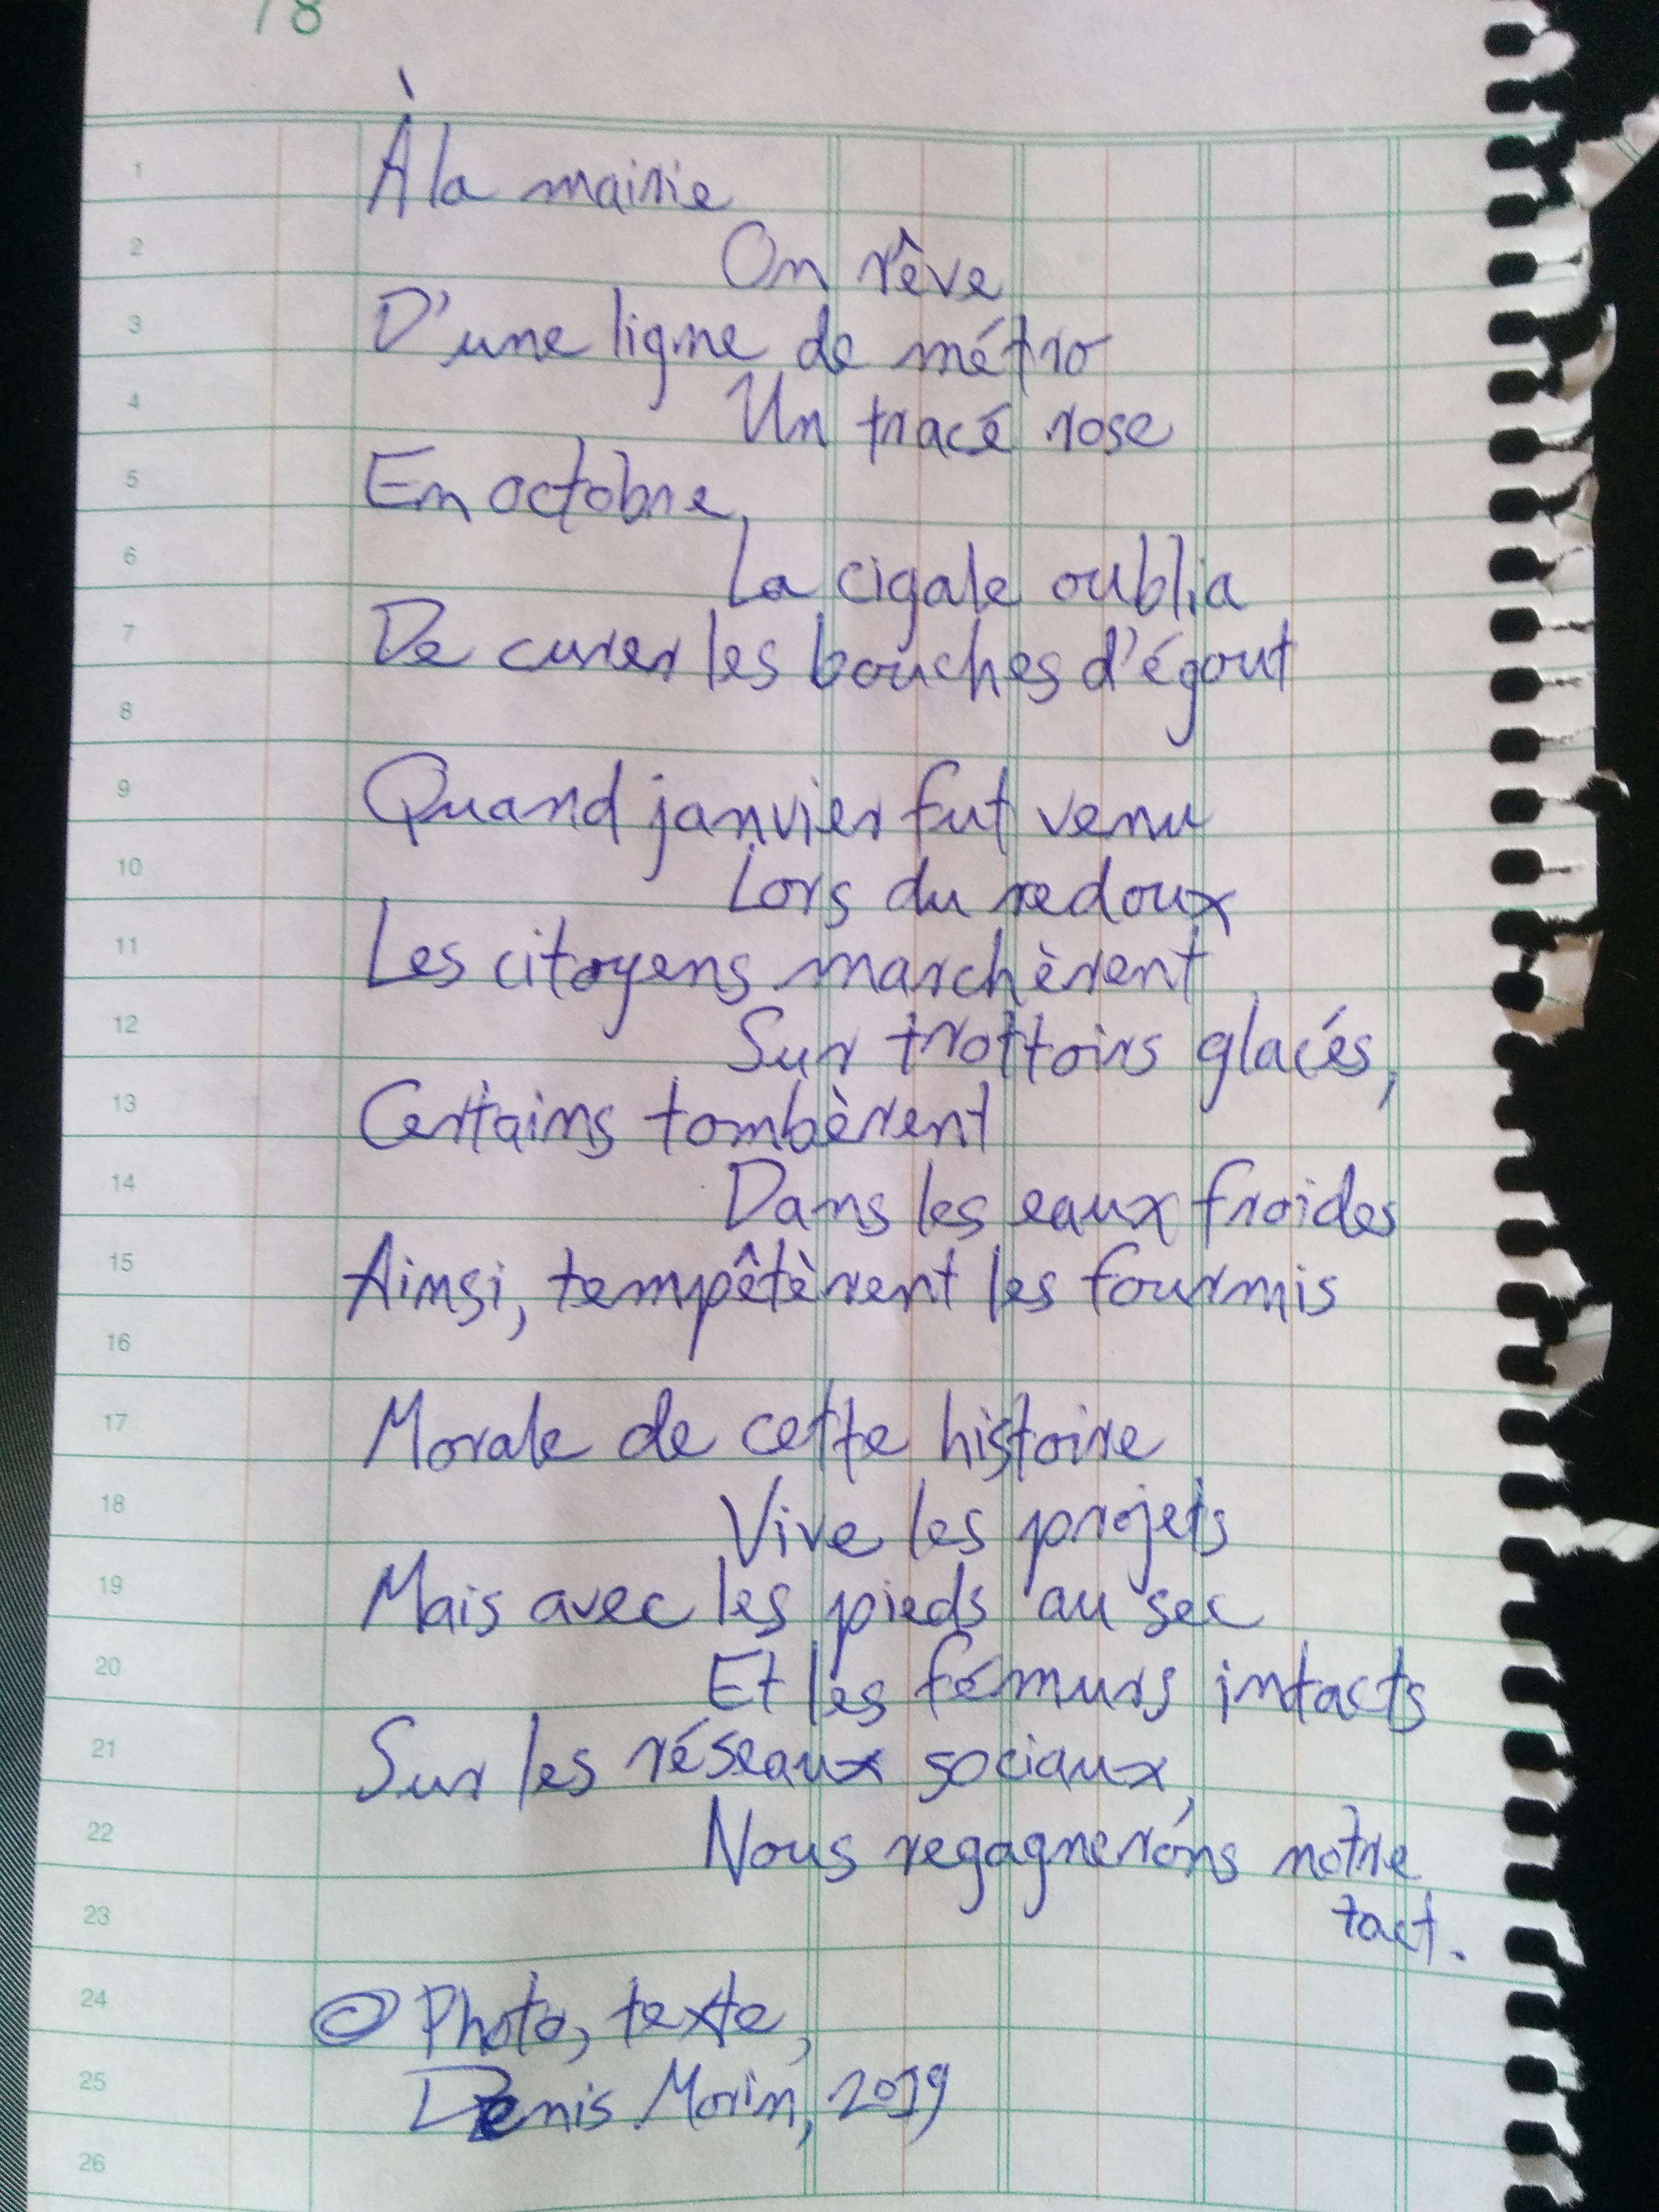 78
1 À la mairie
2 On rêve
3 D'une ligne de métro
4 Un tracé rose
5 En octobre,
6 La cigale oublia
7 De curer les bouches d'égout
8
9 Quand janvier fut venu
10 Lors du redoux
11 Les citoyens marchèrent
12 Sur trottoirs glacés,
13 Certains tombèrent
14 Dans les eaux froides
15 Ainsi, tempêtèrent les fourmis
16
17 Morale de cette histoire
18 Vive les projets
19 Mais avec les pieds au sec
20 Et les fémurs intacts
21 Sur les réseaux sociaux,
22 Nous regagnerons notre
23 tact.
24 © Photo, texte,
25 Denis Morin, 2019
26